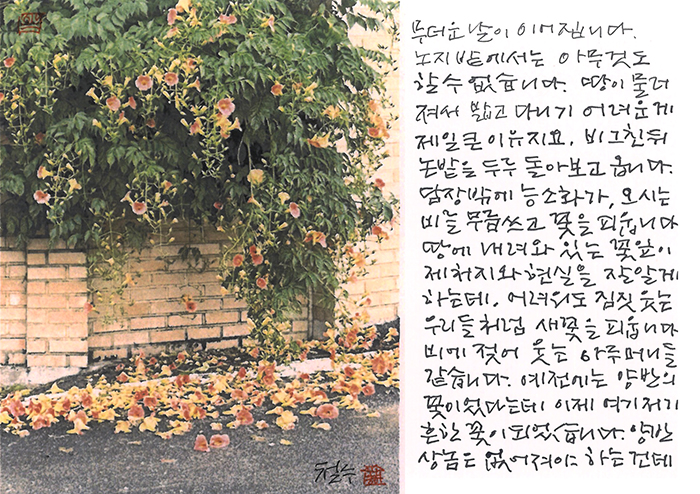 무더운 날이 이어집니다.
노지밭에서는 아무것도
할 수 없습니다. 땅이 물러
져서 밟고 다니기 어려운게
제일 큰 이유지요. 비 그친 뒤
논밭을 두루 돌아보고 옵니다.
담장밖에 능소화가, 오시는
비를 무릅쓰고 꽃을 피웁니다
땅에 내려와 있는 꽃잎이
제 처지와 현실을 잘 알게
하는데, 어려워도 짐짓 웃는
우리들처럼 새꽃을 피웁니다
비에 젖어 웃는 아주머니들
같습니다. 예전에는 양반의
꽃이었다는데 이제 여기저기
흔한 꽃이 되었습니다. 양반
상놈은 없어져야 하는 건데
철수